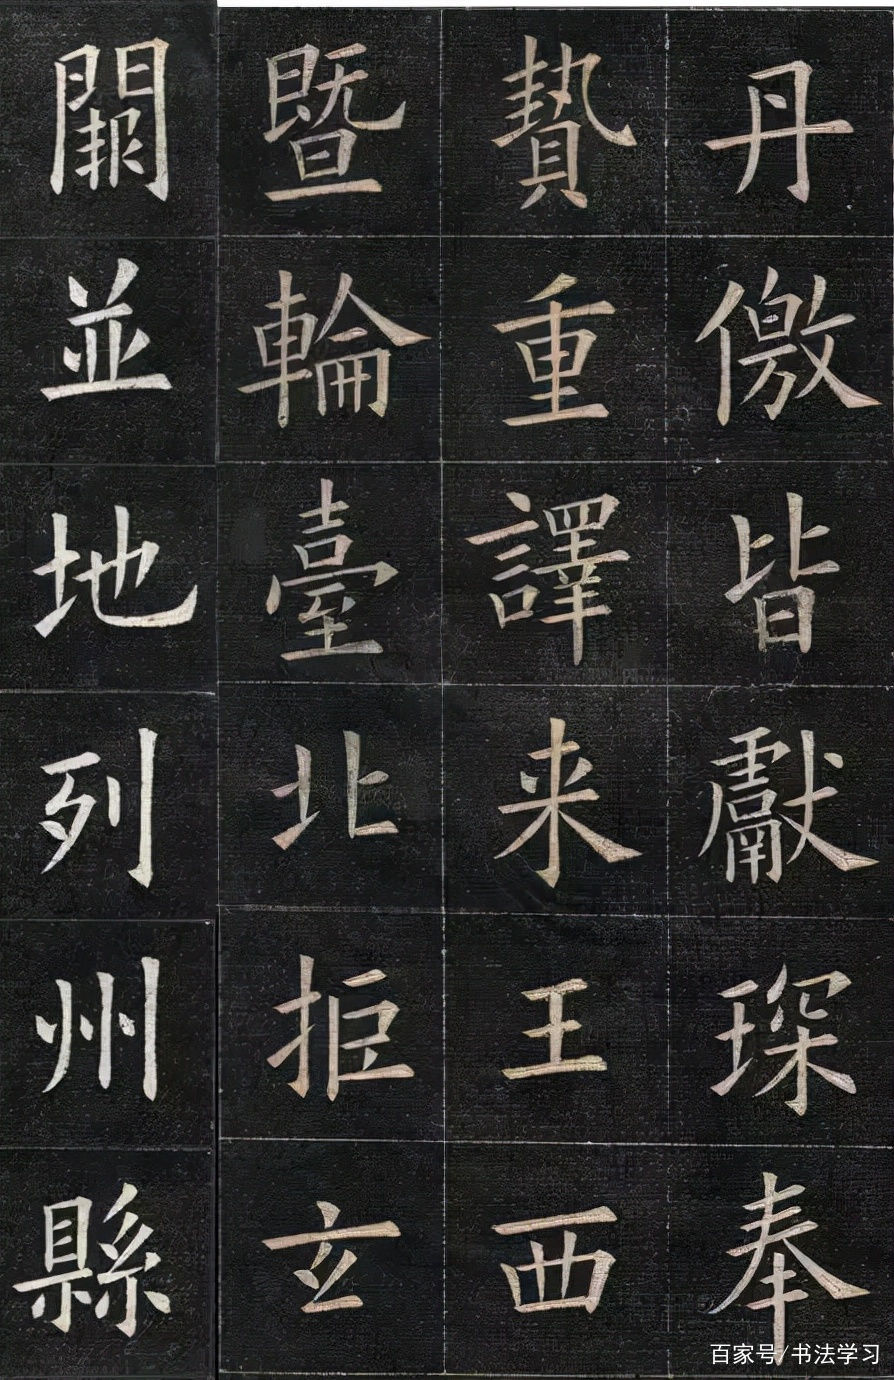 丹徼皆獻琛奉
贄重譯来王西
暨輪臺北拒玄
闕並地列州縣
百家号/书法学习